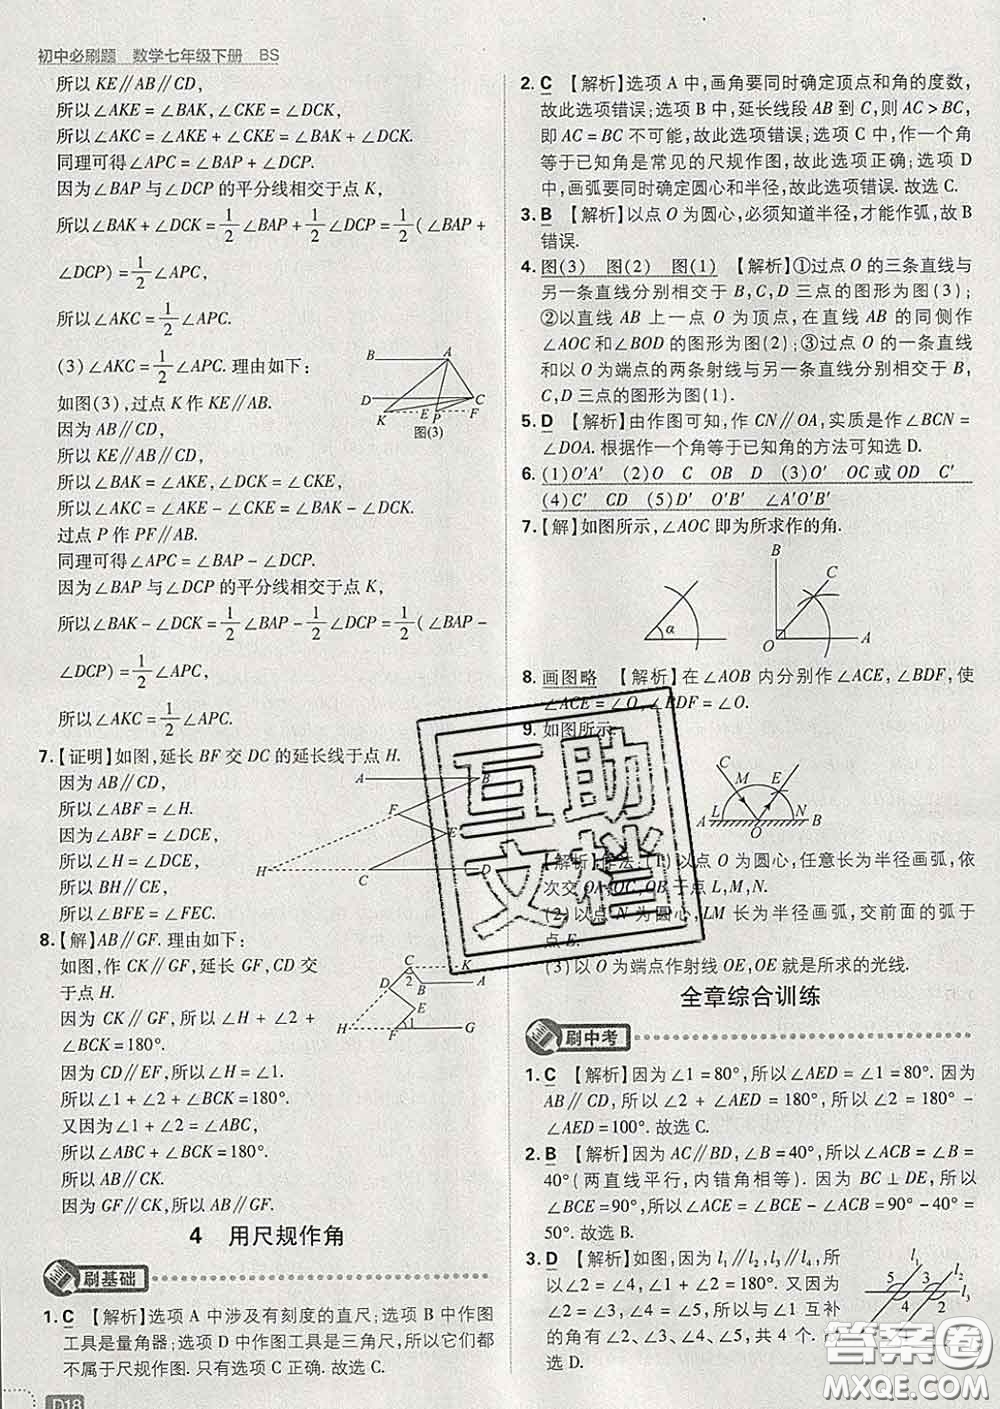 初中必刷题 数学七年级下册 BS
所以 KE∥AB∥CD,
所以∠AKE=∠BAK,∠CKE=∠DCK,
所以∠AKC=∠AKE+∠CKE=∠BAK+∠DCK.
同理可得∠APC=∠BAP+∠DCP.
因为∠BAP 与∠DCP 的平分线相交于点 K,
所以∠BAK+∠DCK=1/2∠BAP+1/2∠DCP=1/2(∠BAP+
∠DCP)=1/2∠APC,
所以∠AKC=1/2∠APC.
(3)∠AKC=1/2∠APC.理由如下:
如图(3),过点 K 作 KE∥AB.
因为 AB∥CD,
所以 KE∥AB∥CD,
所以∠AKE=∠BAK,∠CKE=∠DCK,
所以∠AKC=∠AKE-∠CKE=∠BAK-∠DCK.
过点 P 作 PF∥AB.
同理可得∠APC=∠BAP-∠DCP.
因为∠BAP 与∠DCP 的平分线相交于点 K,
所以∠BAK-∠DCK=1/2∠BAP-1/2∠DCP=1/2(∠BAP-
∠DCP)=1/2∠APC,
所以∠AKC=1/2∠APC.
B A
D C
K E P F
图(3)
7.【证明】如图,延长 BF 交 DC 的延长线于点 H.
因为 AB∥CD,
所以∠ABF=∠H.
因为∠ABF=∠DCE,
所以∠H=∠DCE,
所以 BH∥CE,
所以∠BFE=∠FEC.
A B
F
E
H C D
8.【解】AB∥GF.理由如下:
如图,作 CK∥GF,延长 GF,CD 交
于点 H.
因为 CK∥GF,所以∠H+∠2+
∠BCK=180°.
因为 CD∥EF,所以∠H=∠1,
所以∠1+∠2+∠BCK=180°.
又因为∠1+∠2=∠ABC,
所以∠ABC+∠BCK=180°,
所以 CK∥AB.
因为 GF∥CK,所以 AB∥GF.
C K
2
D B A
E
H F 1 G
4 用尺规作角
刷基础
1. C 【解析】选项 A 中涉及有刻度的直尺;选项 B 中作图
工具是量角器;选项 D 中作图工具是三角尺,所以它们都
不属于尺规作图.只有选项 C 正确.故选 C.
D18
2. C 【解析】选项 A 中,画角要同时确定顶点和角的度数,
故此选项错误;选项 B 中,延长线段 AB 到 C,则 AC>BC,
即 AC=BC 不可能,故此选项错误;选项 C 中,作一个角
等于已知角是常见的尺规作图,故此选项正确;选项 D
中,画弧要同时确定圆心和半径,故此选项错误.故选 C.
3. B 【解析】以点 O 为圆心,必须知道半径,才能作弧,故 B
错误.
4. 图(3) 图(2) 图(1) 【解析】①过点 O 的三条直线与
另一条直线分别相交于 B,C,D 三点的图形为图(3);
②以直线 AB 上一点 O 为顶点,在直线 AB 的同侧作
∠AOC 和∠BOD 的图形为图(2);③过点 O 的一条直线
和以 O 为端点的两条射线与另一条直线分别相交于 B,
C,D 三点的图形为图(1).
5. D 【解析】由作图可知,作 CN∥OA,实质是作∠BCN=
∠DOA.根据作一个角等于已知角的方法可知选 D.
6. (1)O′A′ (2)O C OB D (3)O′ OC或OD C′
(4)C′ CD (5)D′ O′B′ ∠A′O′B′
7.【解】如图所示,∠AOC 即为所求作的角.
α
B C
O A
8. 画图略 【解析】在∠AOB 内分别作∠ACE,∠BDF,使
∠ACE=∠O,∠BDF=∠O.
9. 如图所示.
C M E
L N
A O B
【解析】作法:(1)以点 O 为圆心,任意长为半径画弧,依
次交 OA,OC,OB 于点 L,M,N.
(2)以点 N 为圆心,LM 长为半径画弧,交前面的弧于
点 E.
(3)以 O 为端点作射线 OE,OE 就是所求的光线.
全章综合训练
刷中考
1. C 【解析】因为∠1=80°,所以∠AED=∠1=80°.因为
AB∥CD,所以∠2+∠AED=180°,所以∠2=180°-
∠AED=100°.故选 C.
2. B 【解析】因为 AC∥BD,∠B=40°,所以∠ACB=∠B=
40°(两直线平行,内错角相等).因为 BC⊥DE,所以
∠BCE=90°,所以∠ACE=∠BCE-∠ACB=90°-40°=
50°.故选 B.
3. D 【解析】如图,因为 l₁∥l₂,l₃∥l₄,所
以∠2=∠4,∠1+∠2=180°.又因为
∠2=∠3,∠4=∠5,所以与∠1 互补
的角有∠2,∠3,∠4,∠5,共 4 个.
选 D.
l₄ l₂
5 3
l₃
4 2
互助
文档
答案圈
MXQE.COM